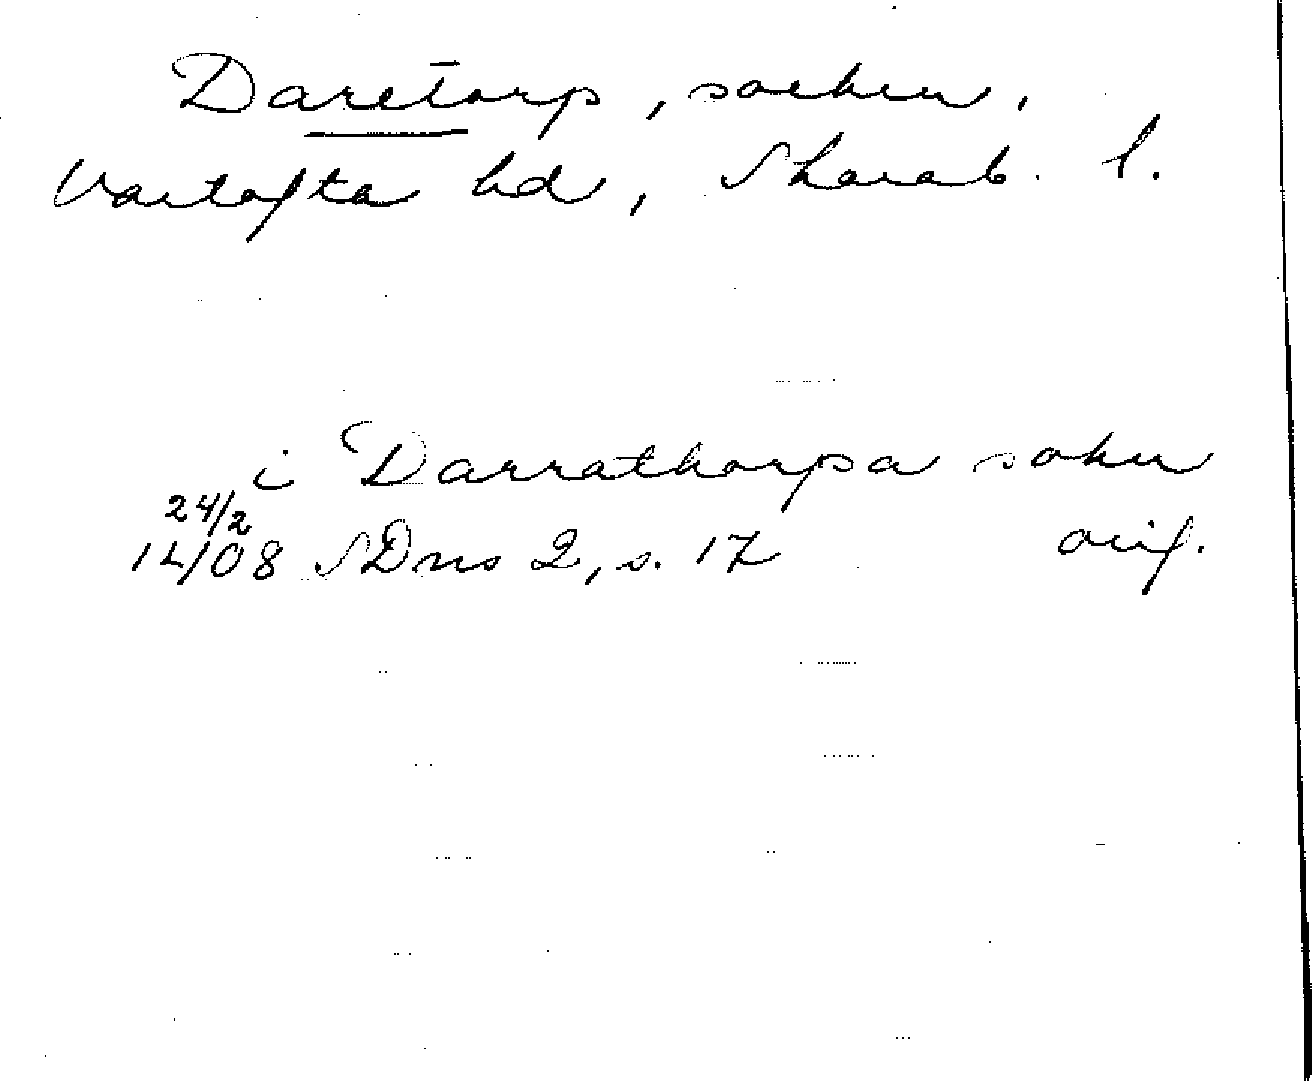 Daretorp, socken,
Vartofta hd, Skarab. l.
i Darrathorpa sokn
24/2
14/08 SDns 2, s. 17 orig.